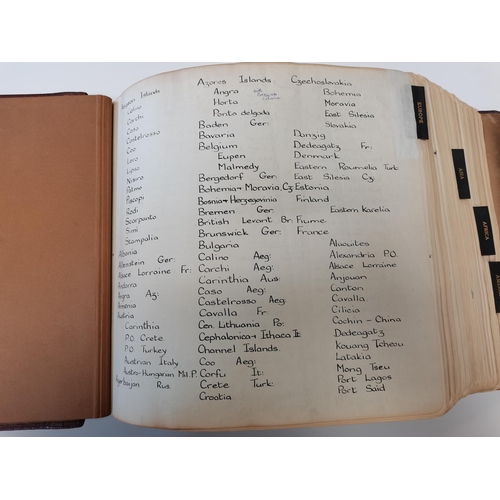 Aegean Islands
Calino
Carchi
Caso
Castelrosso
Coo
Lero
Lipso
Nisiro
Patmo
Piscopi
Rodi
Scarpanto
Simi
Stampalia
Albania
Allenstein Ger:
Alsace Lorraine Fr:
Andorra
Angra Az:
Armenia
Austria
Carinthia
P.O. Crete
P.O Turkey
Austrian Italy
Austro-Hungarian Mil. P.
Azerbaijan Rus.
Azores Islands
Angra
Horta
Ponta delgada
Baden Ger:
Bavaria
Belgium
Eupen
Malmedy
Bergedorf Ger:
Bohemia + Moravia, Cz:
Bosnia + Herzegovinia
Bremen Ger:
British Levant Br:
Brunswick Ger:
Bulgaria
Calino Aeg:
Carchi Aeg:
Carinthia Aus:
Caso Aeg:
Castelrosso Aeg:
Cavalla Fr
Cen. Lithuania Po:
Cephalonica + Ithaca It:
Channel Islands
Coo Aeg:
Corfu It:
Crete Turk:
Croatia
Czechoslovakia
Bohemia
Moravia
East Silesia
Slovakia
Danzig
Dedeagatz Fr:
Denmark
Eastern Roumelia Turk:
East Silesia Cz:
Estonia
Finland
Eastern Karelia
Fiume
France
Alaouites
Alexandria P.O.
Alsace Lorraine
Anjouan
Canton
Cavalla
Cilicia
Cochin - China
Dedeagatz
Kouang Tcheou
Latakia
Mong Tseu
Port Lagos
Port Said
EUROPE
ASIA
AFRICA